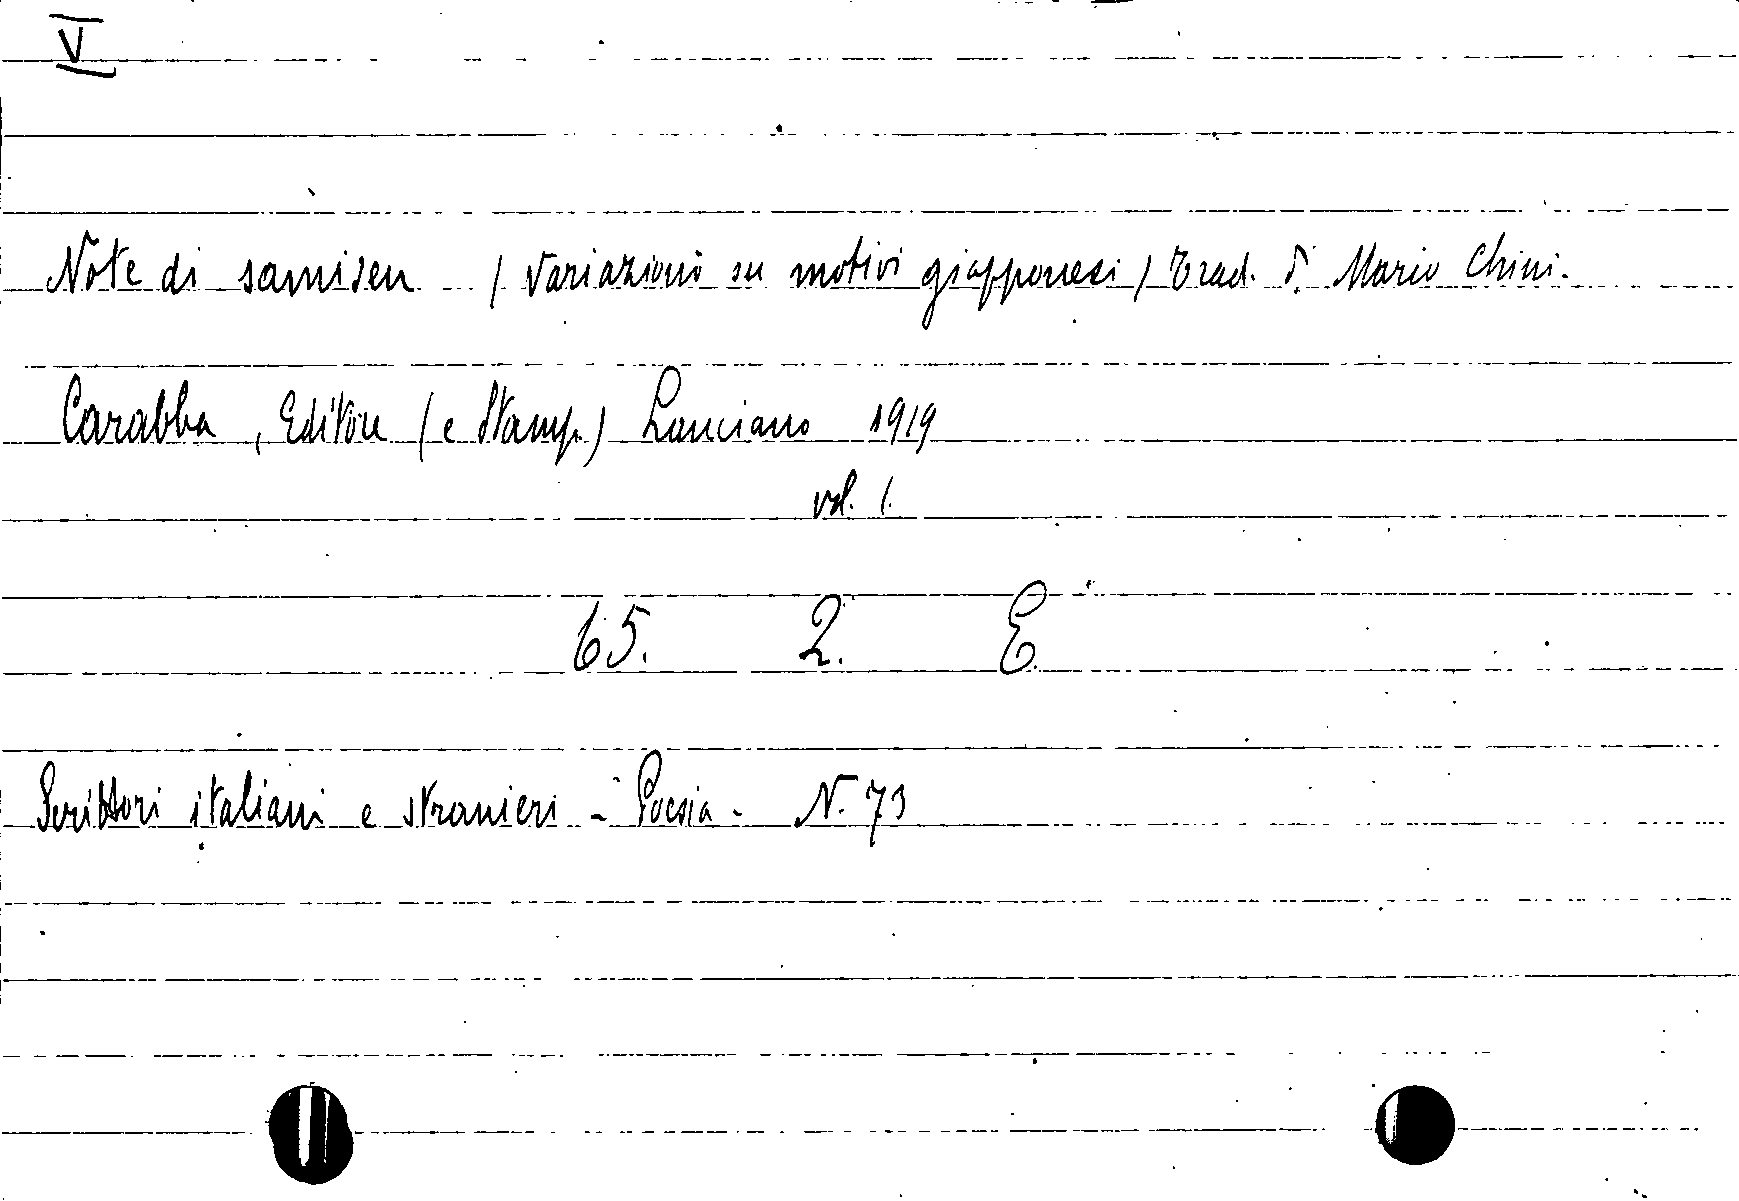 V
Note di samisen / Variazioni su motivi giapponesi / Trad. d. Mario Chini.
Carabba, Editore (e Stamp.) Lanciano 1919
vol. 1.
65. 2. E
Scrittori italiani e stranieri - Poesia - N. 73